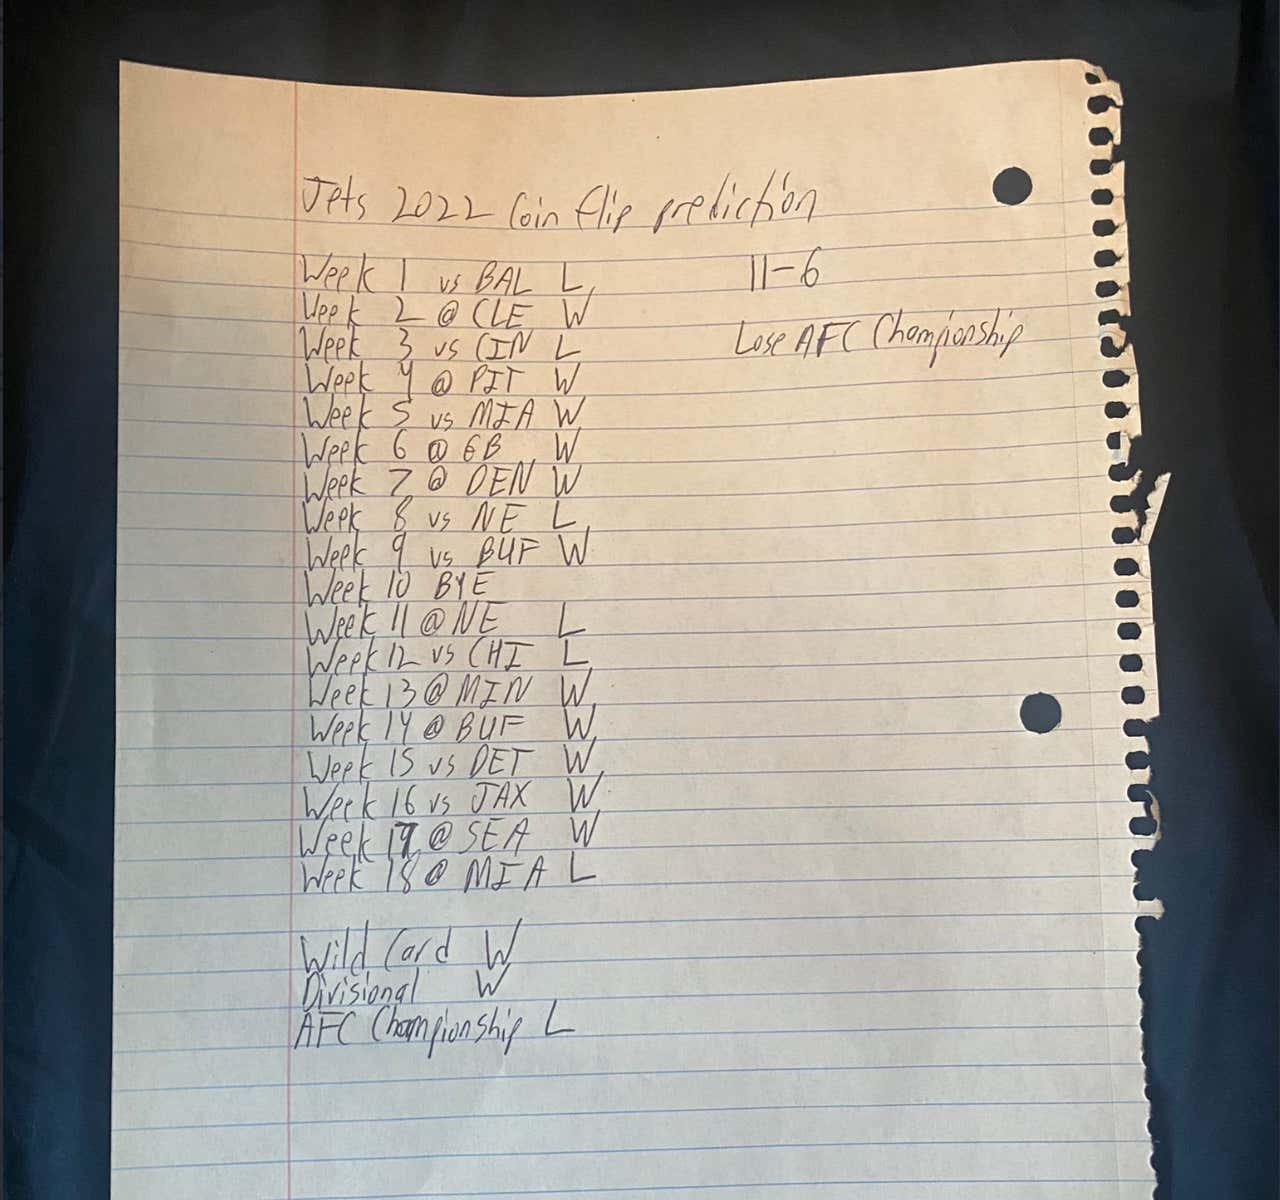 Jets 2022 Coin flip prediction
Week 1 vs BAL L
Week 2 @ CLE W
Week 3 vs CIN L
Week 4 @ PIT W
Week 5 vs MIA W
Week 6 @ GB W
Week 7 @ DEN W
Week 8 vs NE L
Week 9 vs BUF W
Week 10 BYE
Week 11 @ NE L
Week 12 vs CHI L
Week 13 @ MIN W
Week 14 @ BUF W
Week 15 vs DET W
Week 16 vs JAX W
Week 17 @ SEA W
Week 18 @ MIA L
Wild Card W
Divisional W
AFC Championship L
11-6
Lose AFC Championship